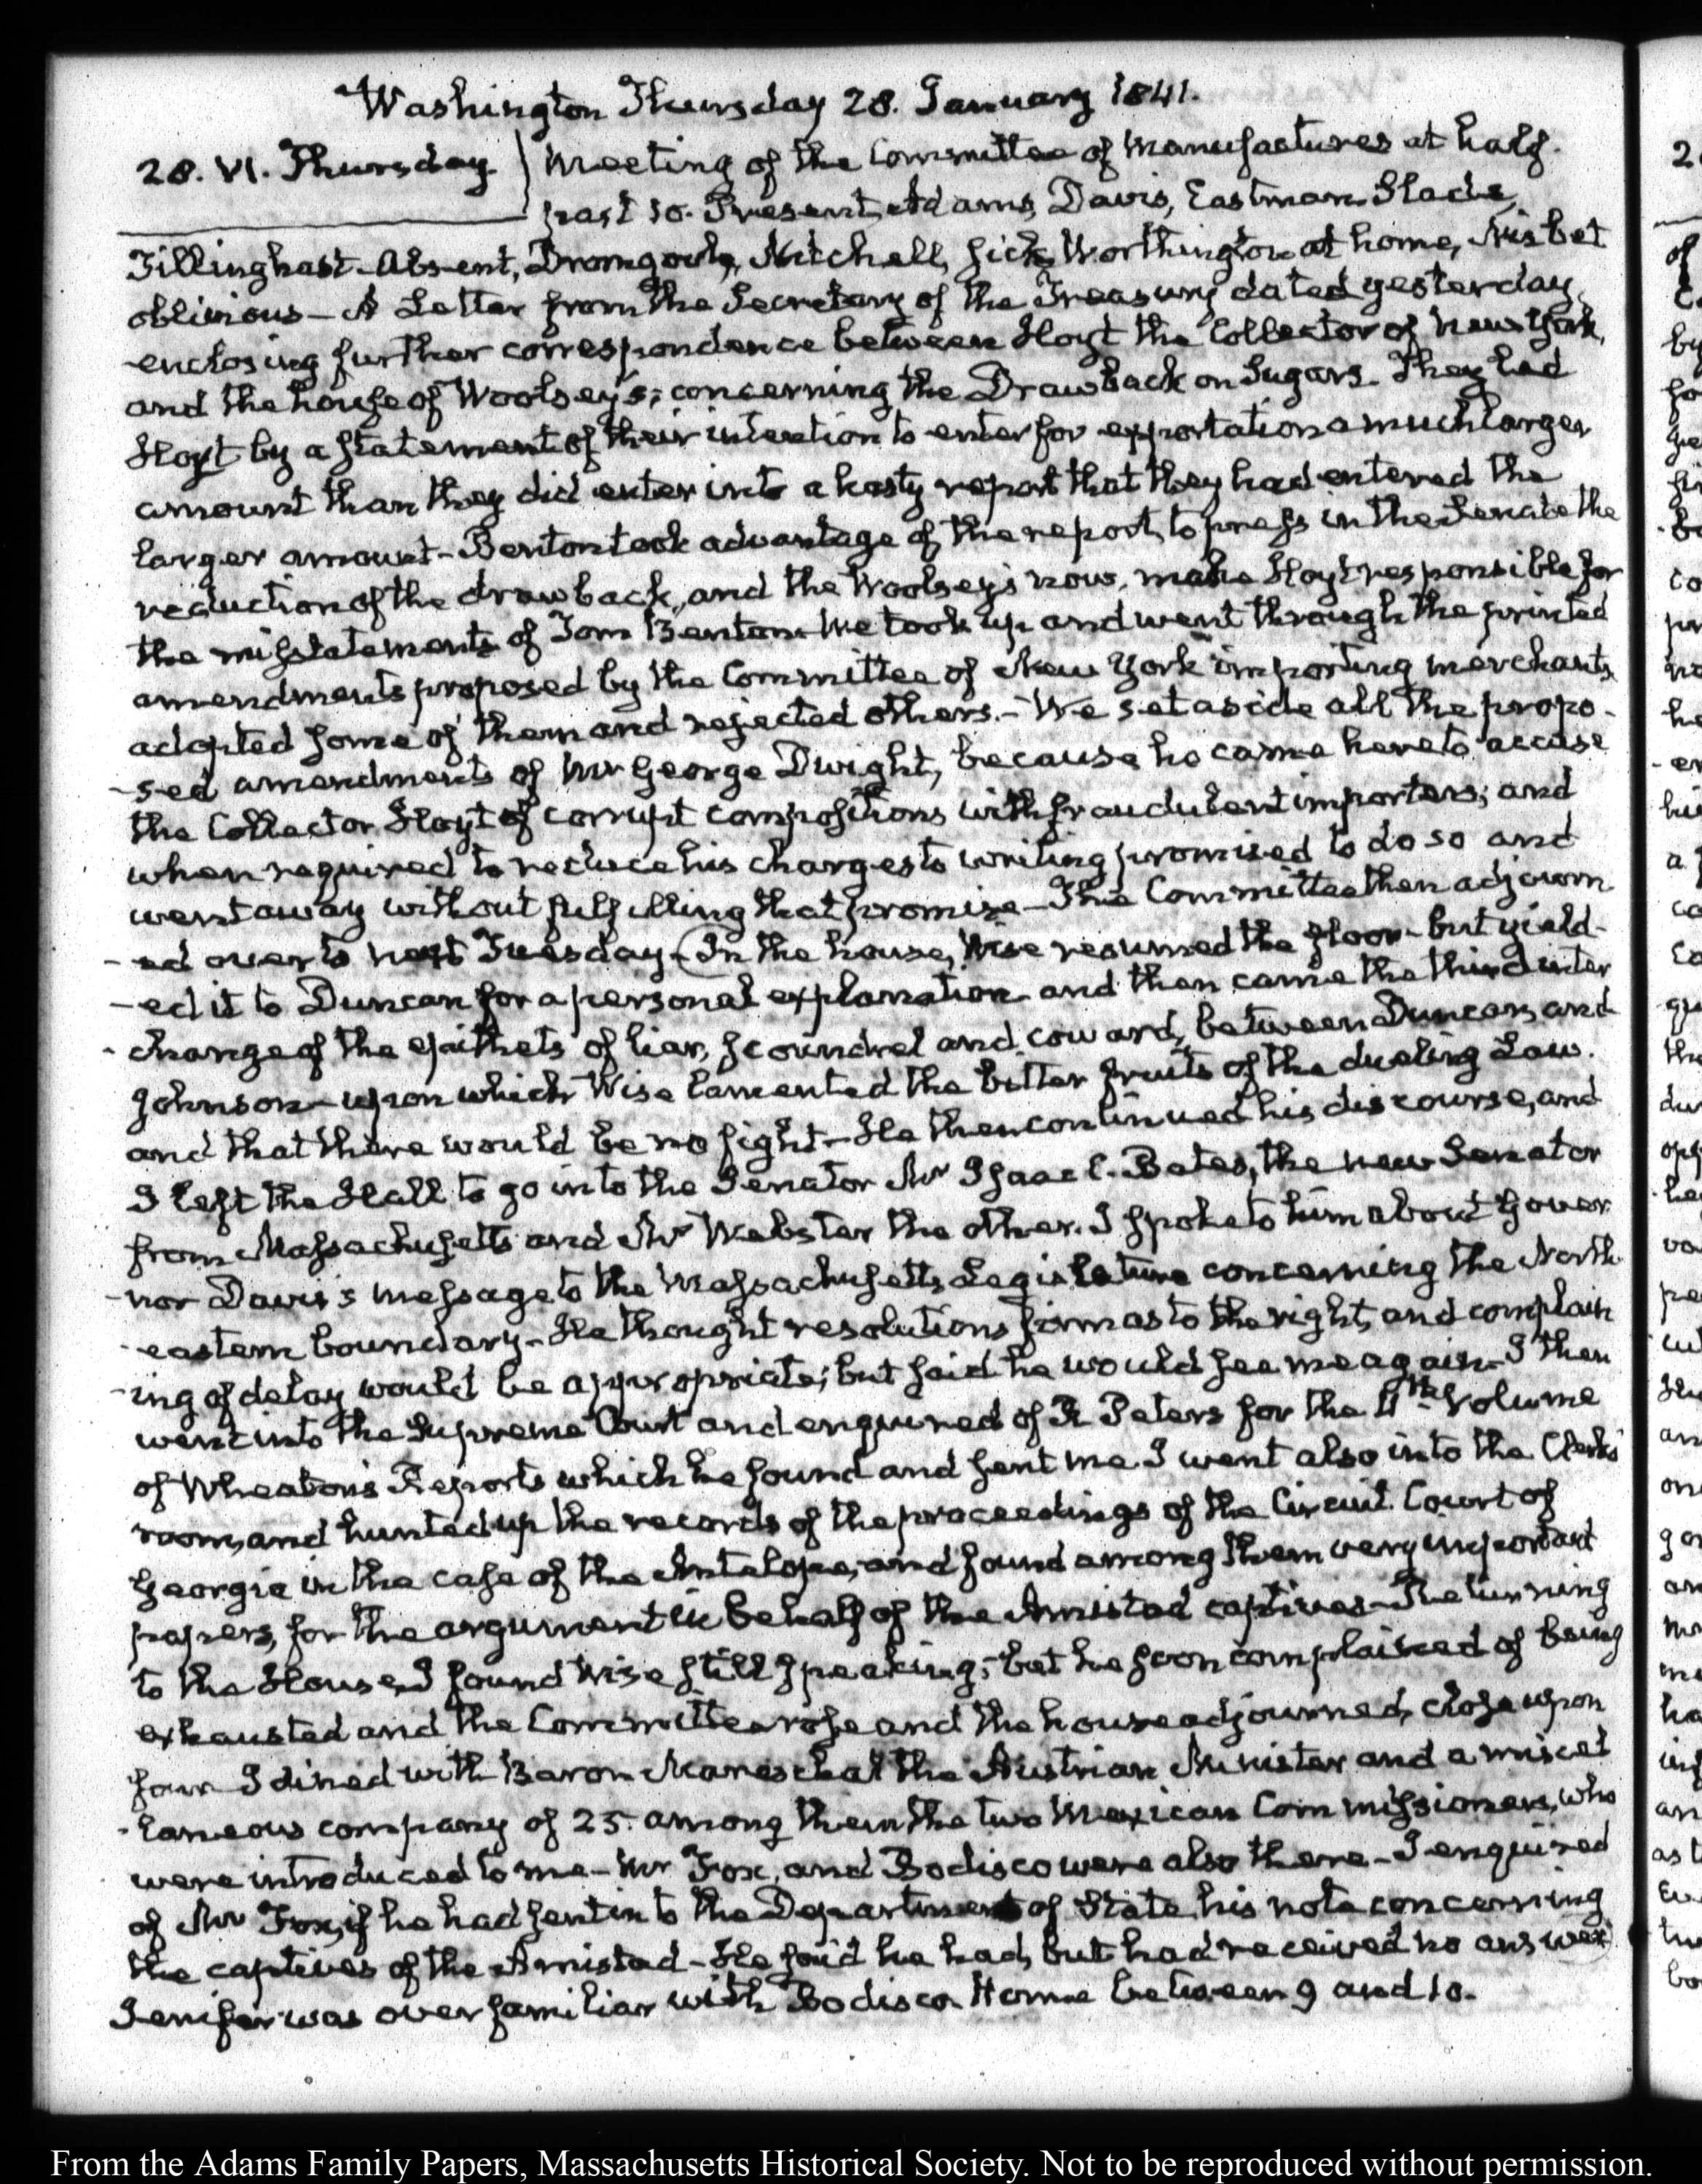 Washington Thursday 28. January 1841.
28. VI. Thursday
Meeting of the Committee of Manufactures at half-
past 10. Present, Adams, Davis, Eastman, Slade,
Tillinghast. Absent, Dromgoole, Mitchell, sick, Worthington at home, Nisbet
oblivious — A Letter from the Secretary of the Treasury dated yesterday,
enclosing further correspondence between Hoyt the Collector of New York,
and the house of Woolsey's; concerning the Drawback on Sugars. They led
Hoyt by a statement of their intention to enter for exportation a much larger
amount than they did enter into a hasty report that they had entered the
larger amount — Benton took advantage of the report, to press in the Senate the
reduction of the drawback, and the Woolsey's now, make Hoyt responsible for
the misstatements of Tom Benton. We took up and went through the printed
amendments proposed by the Committee of New York importing merchants,
adopted some of them and rejected others. — We set aside all the propo-
-sed amendments of Mr George Dwight, because he came here to accuse
the Collector Hoyt of corrupt compositions with fraudulent importers; and
when required to reduce his charges to writing promised to do so and
went away without fulfilling that promise — The Committee then adjourn-
-ed over to next Tuesday — In the house, Wise resumed the floor — but yield-
-ed it to Duncan for a personal explanation and then came the third inter
-change of the epithets of liar, scoundrel and coward, between Duncan, and
Johnson — upon which Wise lamented the bitter fruits of the dueling Law.
and that there would be no fight — He then continued his discourse, and
I left the Hall to go into the Senator Mr Isaac C. Bates, the new Senator
from Massachusetts and Mr Webster the other. I spoke to him about Gover
-nor Davis's message to the Massachusetts Legislature concerning the North
-eastern boundary — He thought resolutions firm as to the right, and complain
-ing of delay would be appropriate; but said he would see me again — I then
went into the Supreme Court and enquired of R Peters for the 11th Volume
of Wheaton's Reports which he found and sent me. I went also into the Clerks'
room, and hunted up the records of the proceedings of the Circuit Court of
Georgia in the case of the Antelope, and found among them very important
papers, for the argument in behalf of the Amistad captives — Returning
to the House, I found Wise still speaking; but he soon complained of being
exhausted and the Committee rose and the house adjourned, close upon
four. I dined with Baron Mareschal the Austrian Minister and a miscel
-laneous company of 25. among them the two Mexican Commissioners, who
were introduced to me — Mr Fox, and Bodisco were also there — I enquired
of Mr Fox, if he had sent in to the Department of State his note concerning
the captives of the Amistad — He said he had, but had received no answer
Jenifer was over familiar with Bodisco. Home between 9 and 10.
From the Adams Family Papers, Massachusetts Historical Society. Not to be reproduced without permission.